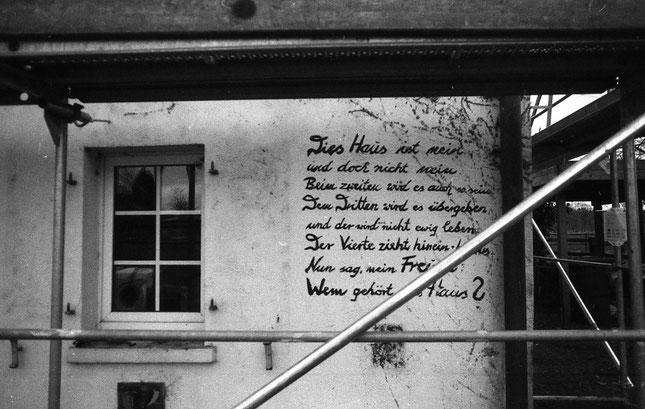 Dies Haus ist mein
und doch nicht mein
Beim zweiten wird es auch so sein
Dem Dritten wird es übergeben,
und der wird nicht ewig leben
Der Vierte zieht hinein
Nun sag, mein
Wem gehört Haus?